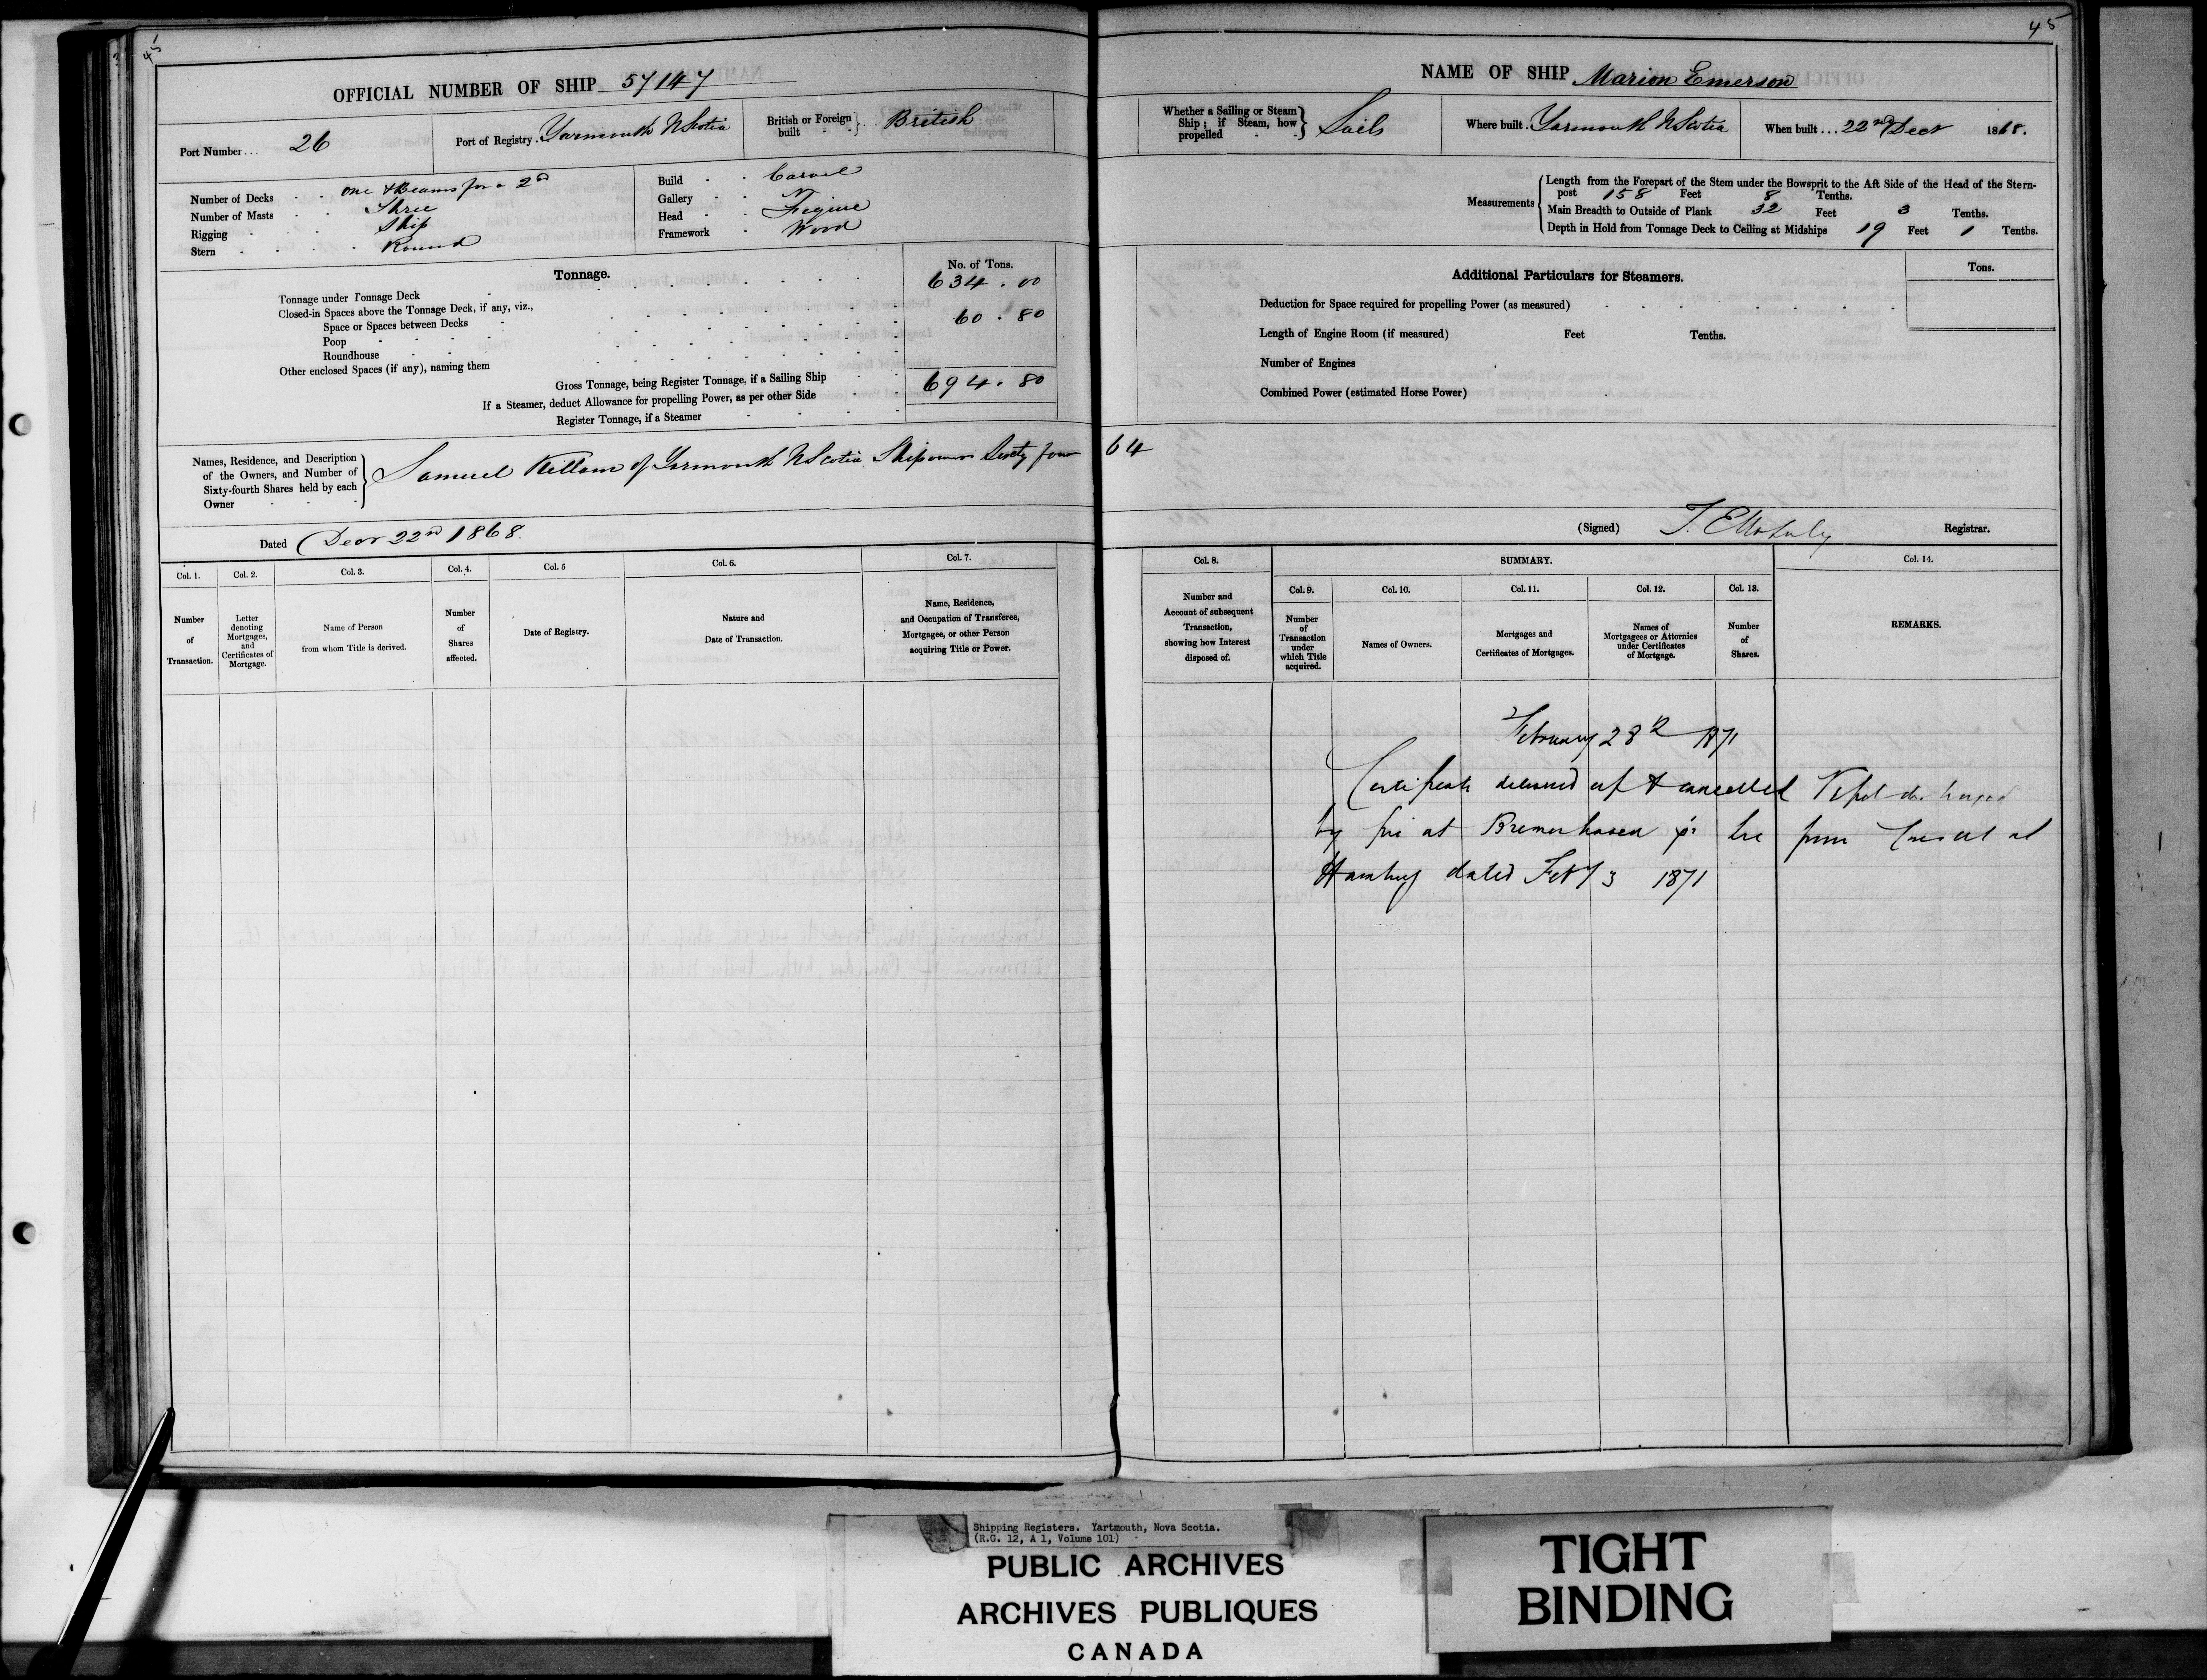 45
OFFICIAL NUMBER OF SHIP 57147
Port Number... 26
Port of Registry. Yarmouth N Scotia
British or Foreign built British
Number of Decks One & Beams for a 2nd
Number of Masts Three
Rigging Ship
Stern Round
Build Carvel
Gallery
Head Figure
Framework Wood
Tonnage.
No. of Tons.
Tonnage under Tonnage Deck 634.00
Closed-in Spaces above the Tonnage Deck, if any, viz.,
Space or Spaces between Decks 60.80
Poop
Roundhouse
Other enclosed Spaces (if any), naming them
Gross Tonnage, being Register Tonnage, if a Sailing Ship 694.80
If a Steamer, deduct Allowance for propelling Power, as per other Side
Register Tonnage, if a Steamer
Names, Residence, and Description
of the Owners, and Number of
Sixty-fourth Shares held by each
Owner
Samuel Killam of Yarmouth N Scotia Shipowner Sixty four 64
Dated Decr 22nd 1868.
Col. 1. Col. 2. Col. 3. Col. 4. Col. 5 Col. 6. Col. 7.
Number
of
Transaction.
Letter
denoting
Mortgages,
and
Certificates of
Mortgage.
Name of Person
from whom Title is derived.
Number
of
Shares
affected.
Date of Registry.
Nature and
Date of Transaction.
Name, Residence,
and Occupation of Transferee,
Mortgagee, or other Person
acquiring Title or Power.
45
NAME OF SHIP Marion Emerson
Whether a Sailing or Steam
Ship; if Steam, how
propelled
Sails
Where built. Yarmouth N Scotia
When built... 22nd Decr 1868.
Measurements
Length from the Forepart of the Stem under the Bowsprit to the Aft Side of the Head of the Stern-
post 158 Feet 8 Tenths.
Main Breadth to Outside of Plank 32 Feet 3 Tenths.
Depth in Hold from Tonnage Deck to Ceiling at Midships 19 Feet 1 Tenths.
Additional Particulars for Steamers.
Tons.
Deduction for Space required for propelling Power (as measured)
Length of Engine Room (if measured) Feet Tenths.
Number of Engines
Combined Power (estimated Horse Power)
(Signed) Registrar.
Col. 8. SUMMARY. Col. 14.
Col. 9. Col. 10. Col. 11. Col. 12. Col. 13.
Number and
Account of subsequent
Transaction,
showing how Interest
disposed of.
Number
of
Transaction
under
which Title
acquired.
Names of Owners.
Mortgages and
Certificates of Mortgages.
Names of
Mortgagees or Attornies
under Certificates
of Mortgage.
Number
of
Shares.
REMARKS.
February 28th 1871
Certificate delivered up & cancelled
by fire at Bremerhaven from Consul at
Hamburg dated Feby 3 1871
Shipping Registers. Yartmouth, Nova Scotia.
(R.G. 12, A 1, Volume 101)
PUBLIC ARCHIVES
ARCHIVES PUBLIQUES
CANADA
TIGHT
BINDING